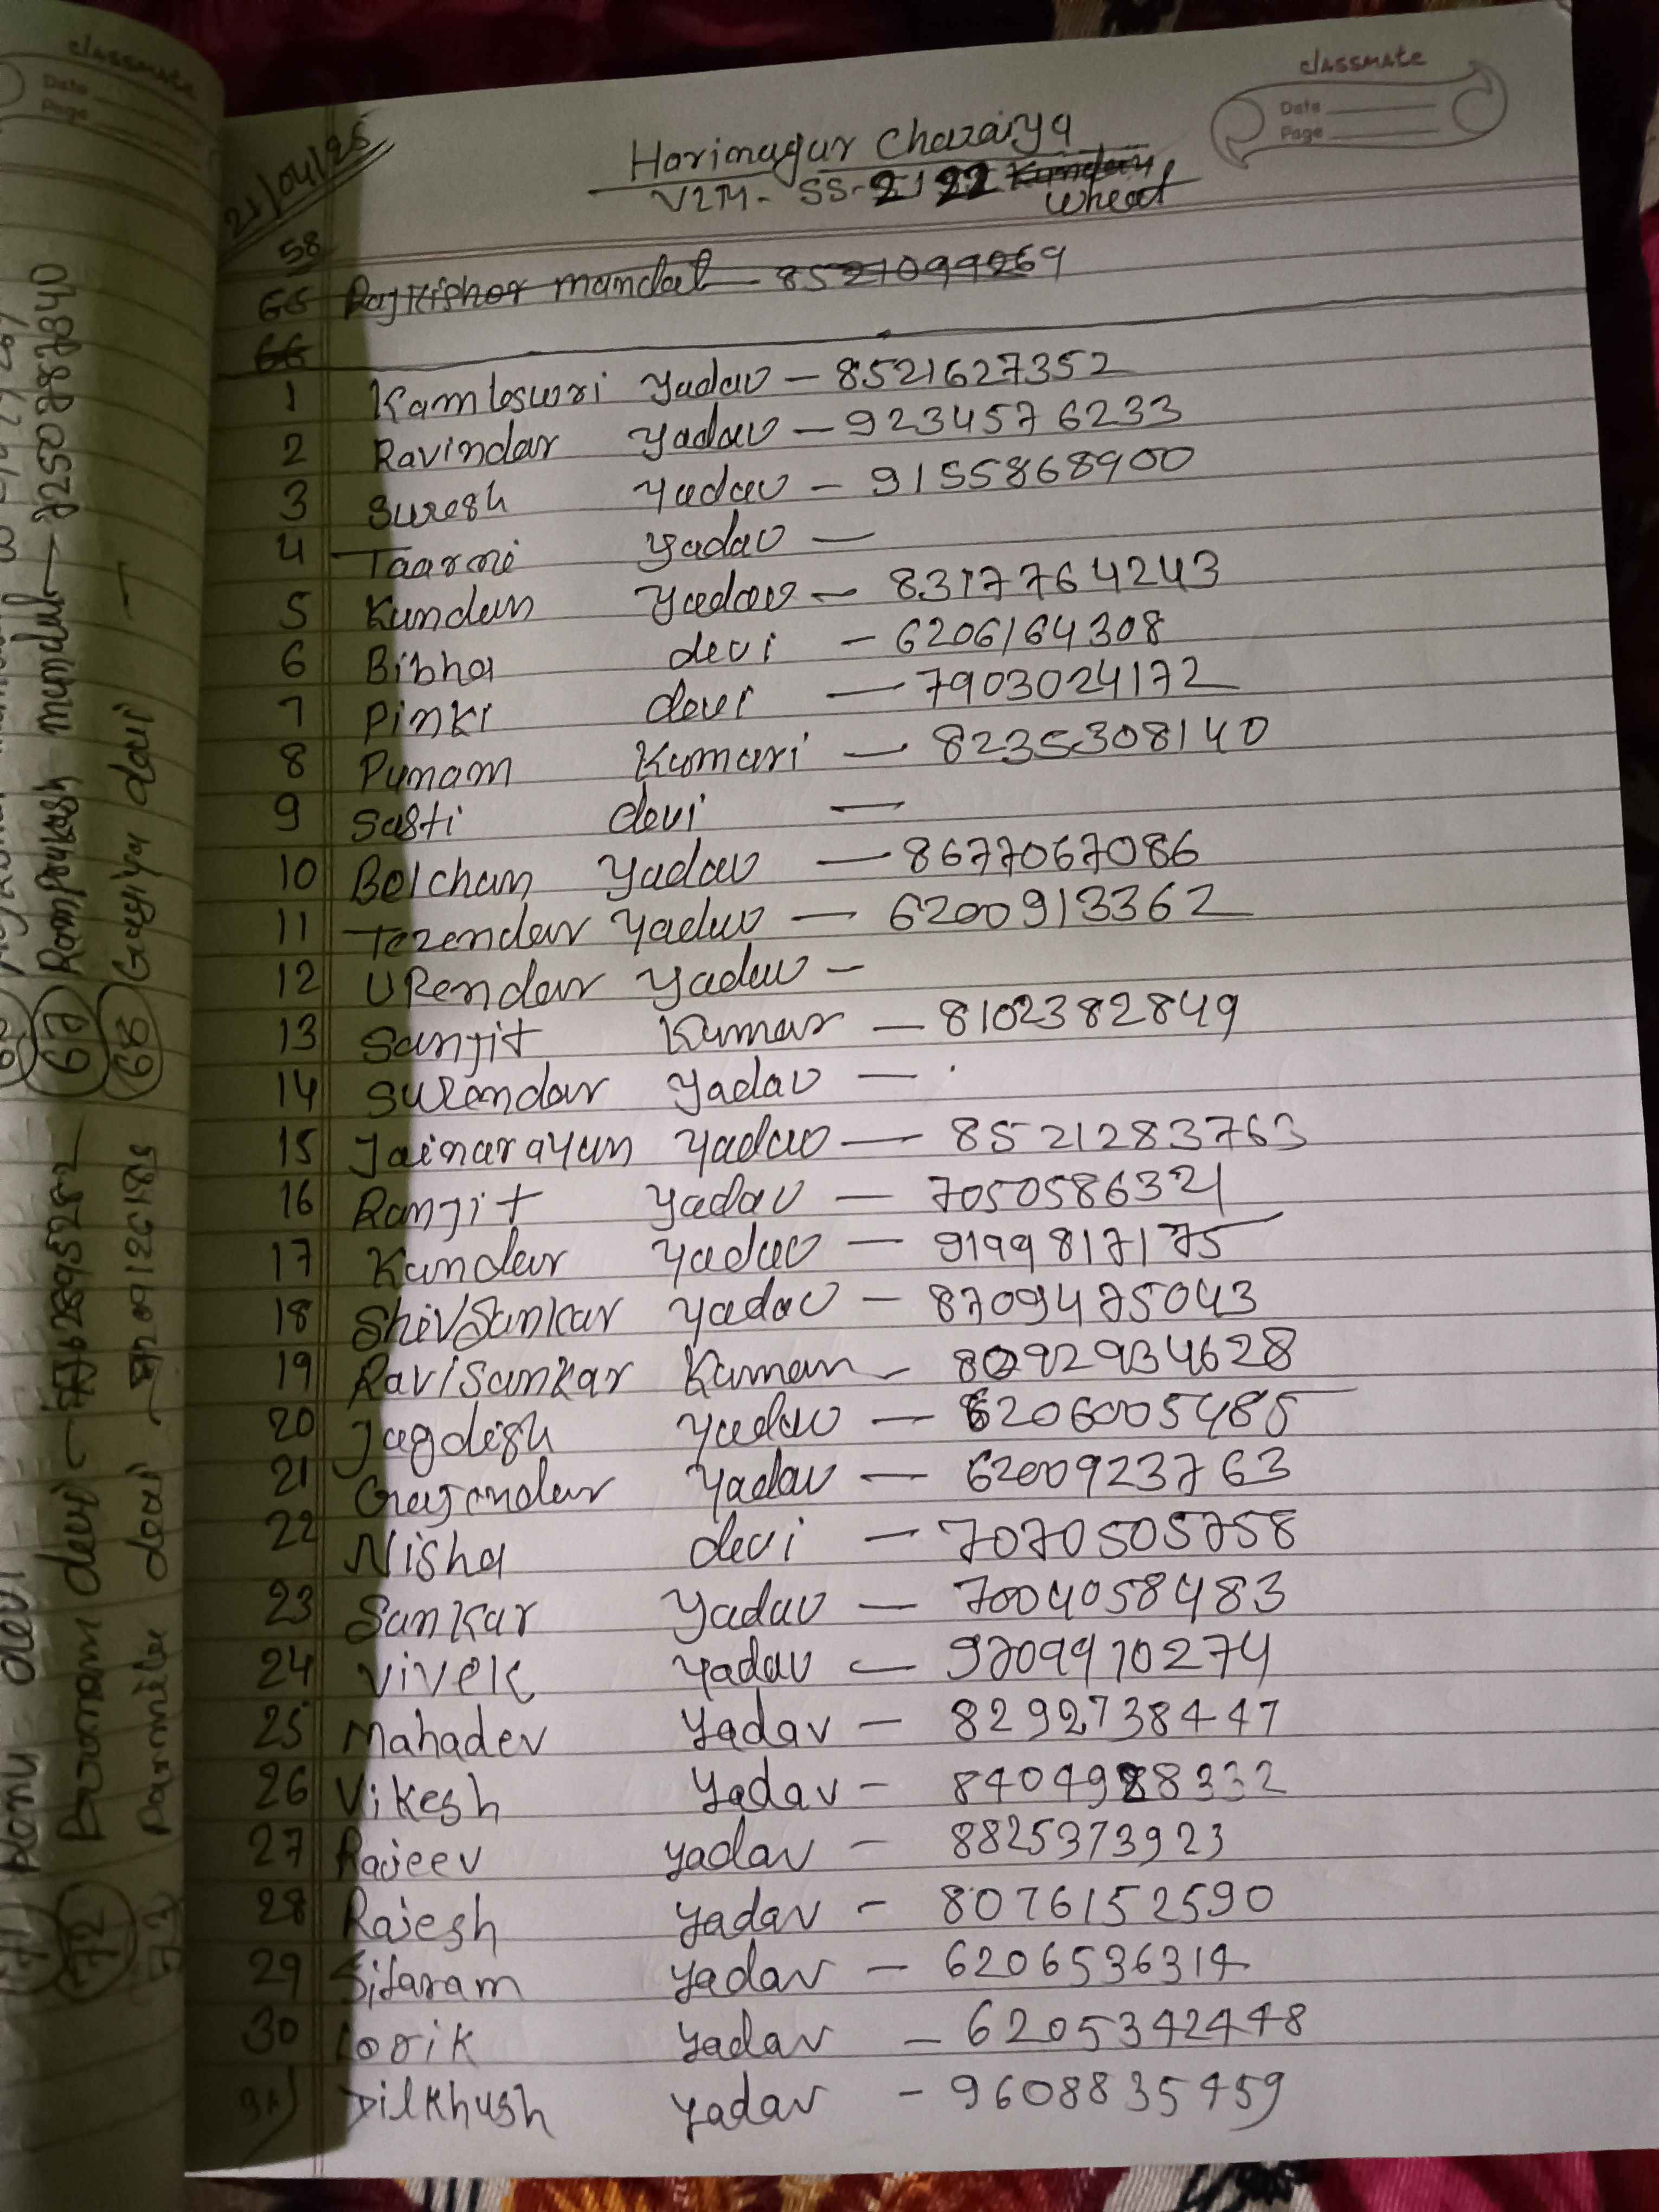 classmate
Date
Page
21/04/25
Harinagar Charaiya
V2M - SS-2122 Kundan
Wheat
58
65 Rajkishor mandal - 8521099269
66
1 Kamleswri Yadav - 8521627352
2 Ravindar Yadav - 9234576233
3 Suresh Yadav - 9155868900
4 Taarni Yadav -
5 Kundan Yadav - 8317764243
6 Bibha devi - 6206164308
7 Pinki devi - 7903024172
8 Punam Kumari - 8235308140
9 Sasti devi -
10 Bolchan Yadav - 8677067086
11 Tezendar Yadav - 6200913362
12 UPendar Yadav -
13 Sanjit Kumar - 8102382849
14 Surendar Yadav -
15 Jainarayan Yadav - 8521283763
16 Ranjit Yadav - 7050586321
17 Kundan Yadav - 9199817175
18 ShivSankar Yadav - 8709475043
19 RaviSankar Kumar - 8092934628
20 Jagdish Yadav - 6206005485
21 Gajendar Yadav - 6200923763
22 Nisha devi - 7070505758
23 Sankar Yadav - 7004058483
24 Vivek Yadav - 9709970274
25 Mahadev Yadav - 8292738447
26 Vikesh Yadav - 8404988332
27 Rajeev Yadav - 8825373923
28 Rajesh Yadav - 8076152590
29 Sitaram Yadav - 6206536314
30 Lorik Yadav - 6205342448
31 Dilkhush Yadav - 9608835459
classmate
Date
Page
67 Ramprakash mumdal - 7250287340
68 Gayiya devi -
71 devi
72 Poonam devi
73 Parmila devi